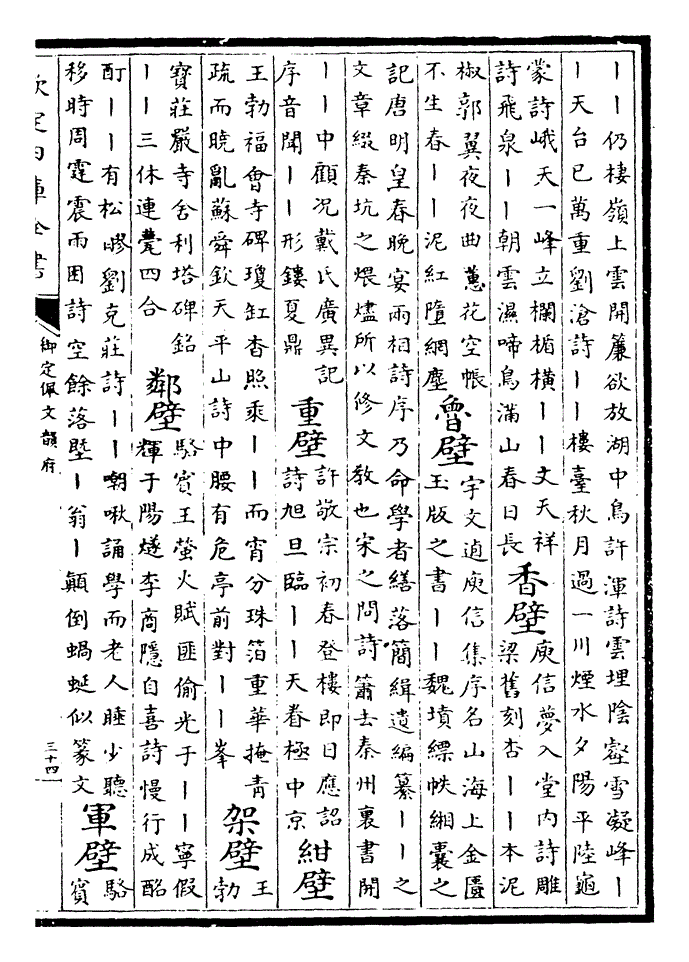 丨丨仍棲嶺上雲開簾欲放湖中鳥許渾詩雲埋陰壑雪凝峰丨
丨天台已萬重劉滄詩丨丨樓臺秋月過一川煙水夕陽平陸龜
蒙詩峨天一峰立欄楯橫丨丨文天祥
詩飛泉丨丨朝雲濕啼鳥滿山春日長
香壁
庾信夢入堂內詩雕
梁舊刻杏丨丨本泥
椒郭翼夜夜曲蕙花空帳
不生春丨丨泥紅墮網塵
魯壁
宇文逌庾信集序名山海上金匱
玉版之書丨丨魏墳縹帙緗囊之
記唐明皇春晚宴兩相詩序乃命學者繕落簡緝遺編纂丨丨之
文章綴秦坑之煨燼所以修文教也宋之問詩簫去秦州裏書開
丨丨中顧况戴氏廣異記
序音聞丨丨形鏤夏鼎
重壁
許敬宗初春登樓即目應詔
詩旭旦臨丨丨天眷極中京
紺壁
王勃福會寺碑瓊缸杳照乘丨丨而宵分珠箔重華掩青
疏而曉亂蘇舜欽天平山詩中腰有危亭前對丨丨峯
架壁
王
勃
寶莊嚴寺舍利塔碑銘
丨丨三休連甍四合
鄰壁
駱賓王螢火賦匪偷光于丨丨寧假
輝于陽燧李商隱自喜詩慢行成酩
酊丨丨有松醪劉克莊詩丨丨嘲啾誦學而老人睡少聽
移時周霆震雨困詩空餘落墍丨翁丨顛倒蝸蜒似篆文
軍壁
駱
賓
欽定四庫全書
御定佩文韻府
三十四